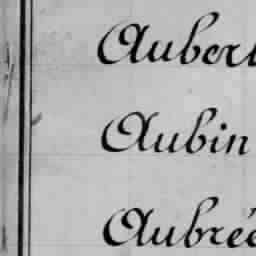 Aubert
Aubin
Aubrée